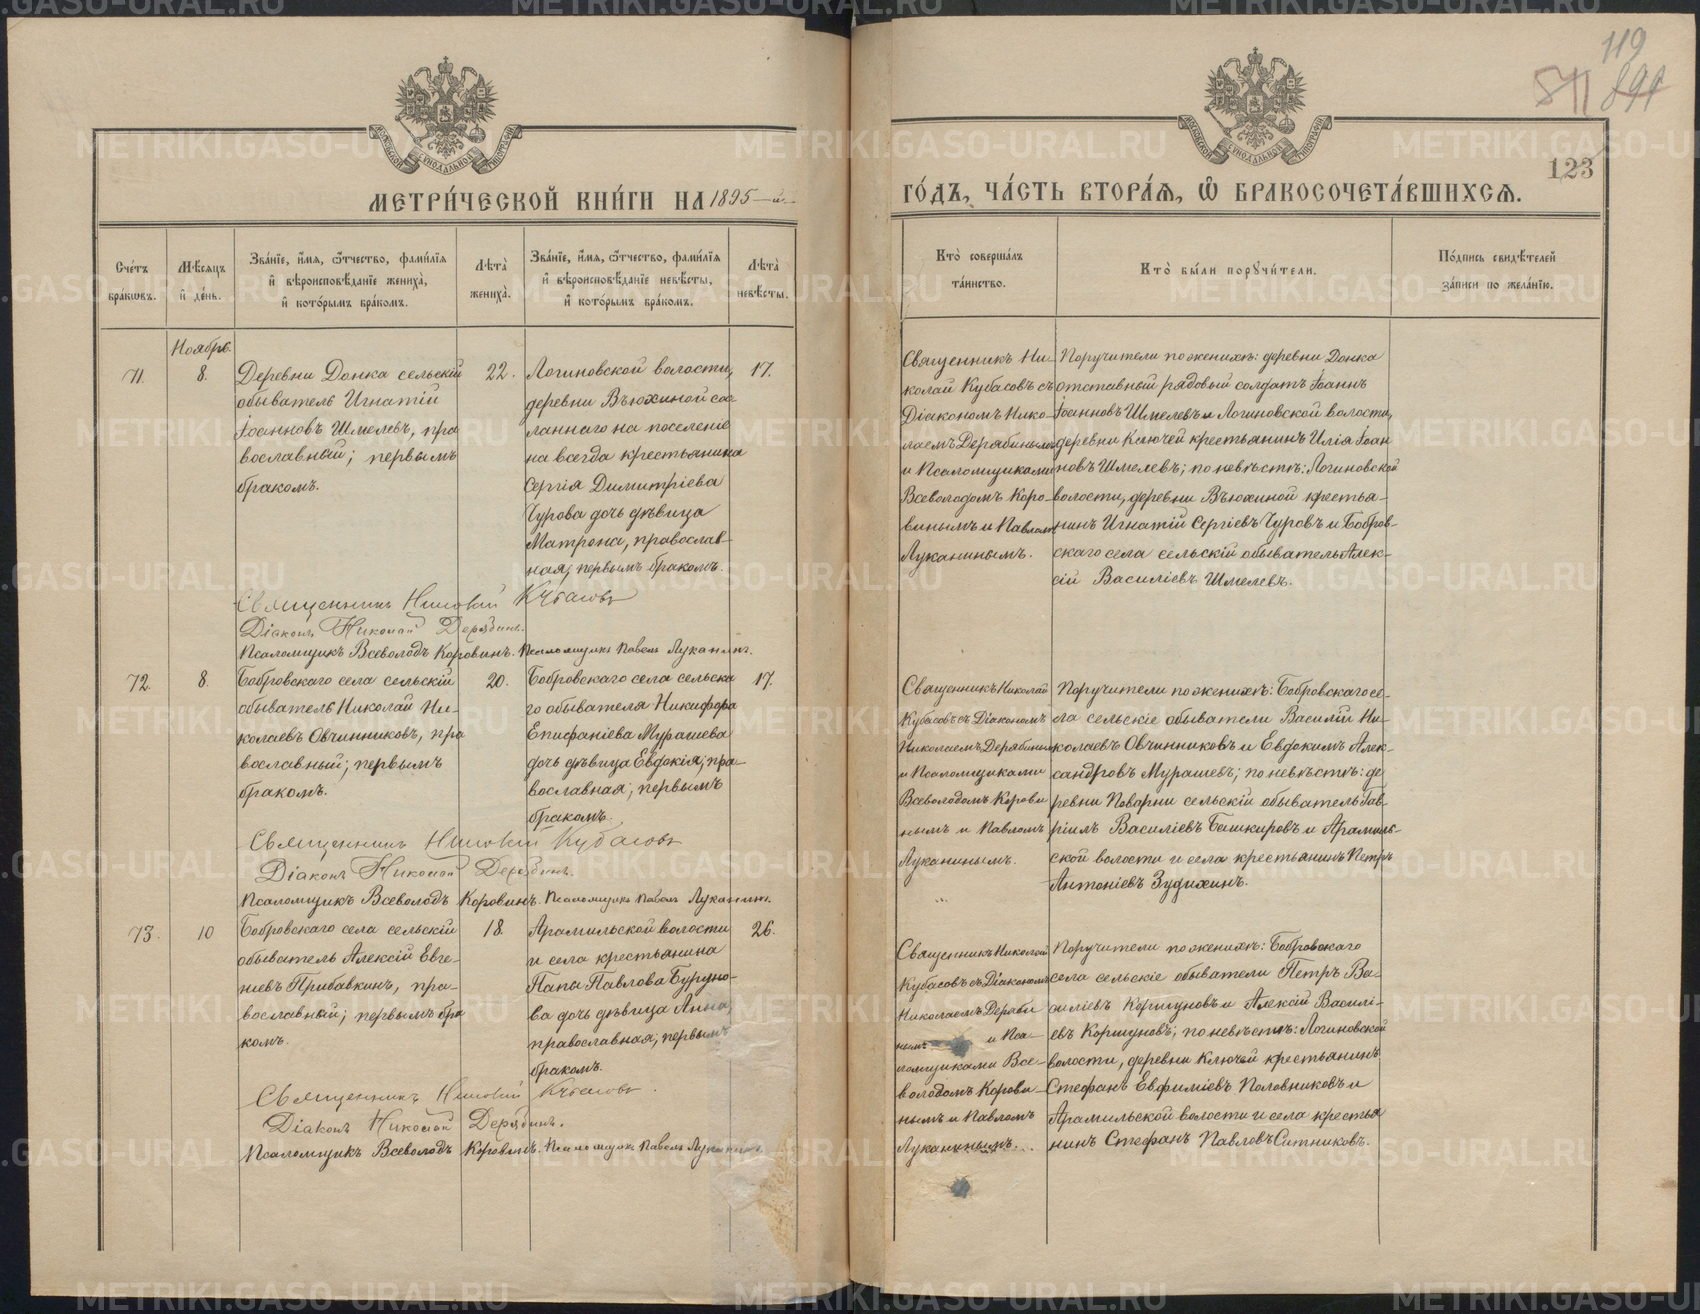 119
891
511
123
МЕТРИ́ЧЕСКОЙ КНИ́ГИ НА 1895-й
ГО́ДЪ, ЧА́СТЬ ВТОРА́Я, Ѡ БРАКОСОЧЕТА́ВШИХСЯ.
Сче́тъ бра́кωвъ.
Мѣ́сяцъ и де́нь.
Зва́нїе, и́мя, ѻ́тчество, фами́лїя и вѣроисповѣ́данїе жениха̀, и кото́рымъ бра́комъ.
Лѣта̀ жениха̀.
Зва́нїе, и́мя, ѻ́тчество, фами́лїя и вѣроисповѣ́данїе невѣ́сты, и кото́рымъ бра́комъ.
Лѣта̀ невѣ́сты.
Кто̀ соверша́лъ та́инство.
Кто̀ бы́ли поручи́тели.
По́дпись свидѣ́телей за́писи по жела́нїю.
Ноябрь.
71.
8.
Деревни Донка сельскій
обыватель Игнатій
Іоанновъ Шмелевъ, пра
вославный; первымъ
бракомъ.
22.
Логиновской волости,
деревни Вьюхиной сос-
ланнаго на поселеніе
на всегда крестьянина
Сергія Димитріева
Чурова дочь дѣвица
Матрона, православ-
ная; первымъ бракомъ.
17.
Священникъ Ни-
колай Кубасовъ съ
Діакономъ Нико-
лаемъ Дерябинымъ
и Псаломщиками
Всеволодомъ Коро-
винымъ и Павломъ
Луканинымъ.
Поручители по женихѣ: деревни Донка
отставный рядовый солдатъ Іоаннъ
Іоанновъ Шмелевъ и Логиновской волости,
деревни Ключей крестьянинъ Илія Іоан
новъ Шмелевъ; по невѣстѣ: Логиновской
волости, деревни Вьюхиной крестья-
нинъ Игнатій Сергіевъ Чуровъ и Бобров-
скаго села сельскій обыватель Алек-
сій Василіевъ Шмелевъ.
Священникъ Николай Кубасовъ
Діаконъ Николай Дерябинъ.
Псаломщикъ Всеволодъ Коровинъ. Псаломщикъ Павелъ Луканинъ.
72.
8.
Бобровскаго села сельскій
обыватель Николай Ни-
колаевъ Овчинниковъ, пра
вославный; первымъ
бракомъ.
20.
Бобровскаго села сельска
го обывателя Никифора
Епифаніева Мурашева
дочь дѣвица Евдокія; пра-
вославная; первымъ
бракомъ.
17.
Священникъ Николай
Кубасовъ съ Діакономъ
Николаемъ Дерябинымъ
и Псаломщиками
Всеволодомъ Корови
нымъ и Павломъ
Луканинымъ.
Поручители по женихѣ: Бобровскаго се-
ла сельскіе обыватели Василій Ни-
колаевъ Овчинниковъ и Евдокимъ Алек-
сандровъ Мурашевъ; по невѣстѣ: де
ревни Поварни сельскій обыватель Гав-
ріилъ Василіевъ Башкировъ и Арамиль-
ской волости и села крестьянинъ Петръ
Антоніевъ Зудихинъ.
Священникъ Николай Кубасовъ
Діаконъ Николай Дерябинъ.
Псаломщикъ Всеволодъ Коровинъ. Псаломщикъ Павелъ Луканинъ.
73.
10
Бобровскаго села сельскій
обыватель Алексій Евге-
ніевъ Прибавкинъ, пра-
вославный; первымъ бра
комъ.
18.
Арамильской волости
и села крестьянина
Папа Павлова Бурцо-
ва дочь дѣвица Анна,
православная, первымъ
бракомъ.
26.
Священникъ Николай
Кубасовъ съ Діакономъ
Николаемъ Деряби
нымъ и Пса-
ломщиками Все-
володомъ Корови-
нымъ и Павломъ
Луканинымъ.
Поручители по женихѣ: Бобровскаго
села сельскіе обыватели Петръ Ва-
силіевъ Коршуновъ и Алексій Василі-
евъ Коршуновъ; по невѣстѣ: Логиновской
волости, деревни Ключей крестьянинъ
Стефанъ Евфиміевъ Половниковъ и
Арамильской волости и села крестья
нинъ Стефанъ Павловъ Ситниковъ.
Священникъ Николай Кубасовъ.
Діаконъ Николай Дерябинъ.
Псаломщикъ Всеволодъ Коровинъ. Псаломщикъ Павелъ Луканинъ.
METRIKI.GASO-URAL.RU